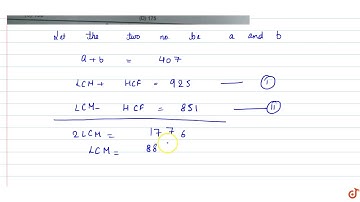 (D) 125
Let the two no be a and b
a+b = 407
LCM+ HCF = 925 — (I)
LCM- HCF = 851 — (II)
2LCM = 1776
LCM = 88